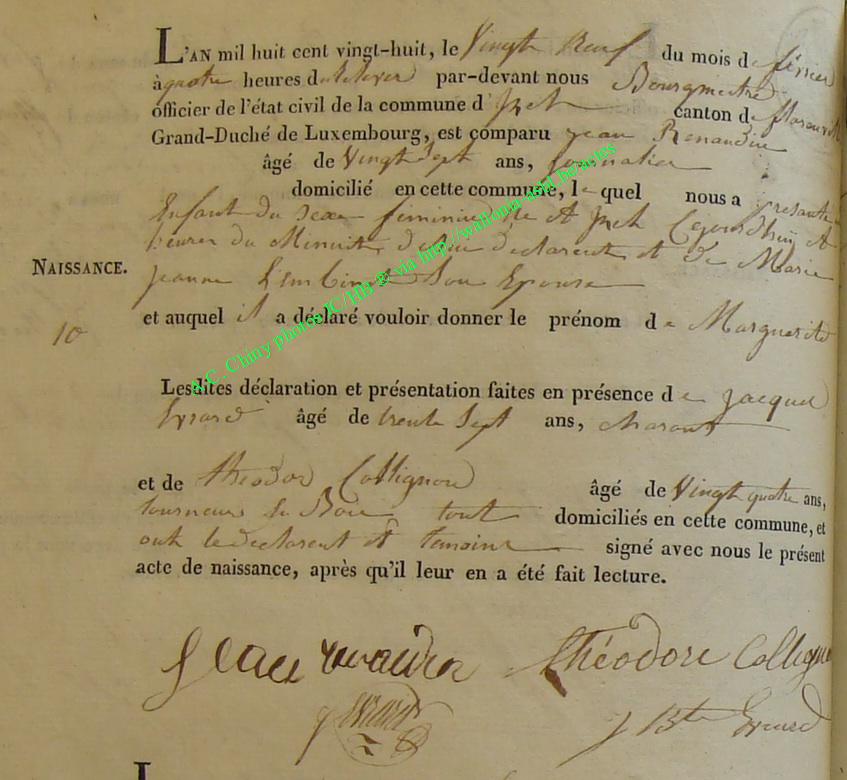 L'AN mil huit cent vingt-huit, le Vingt Neuf du mois de février
à quatre heures de relevée par-devant nous Bourgmestre
officier de l'état civil de la commune d' canton de Florenville
Grand-Duché de Luxembourg, est comparu jean Renaudin
âgé de Vingt Sept ans, journalier
domicilié en cette commune, lequel nous a présenté
Enfant du sexe féminin née
heures du déclarent et de Marie
NAISSANCE.
jeanne son Epouse
10
et auquel il a déclaré vouloir donner le prénom de Marguerite
Lesdites déclaration et présentation faites en présence de jacque
Evrard âgé de trente Sept ans,
et de théodor Collignon âgé de Vingt quatre ans,
tourneur en Bois tout domiciliés en cette commune, et
ont le declarent et temoins signé avec nous le présent
acte de naissance, après qu'il leur en a été fait lecture.
théodore Collignon
j Bte Evrard
A.C. Chiny photos JC/Hla @ via http://wallonia-asbl.be/actes